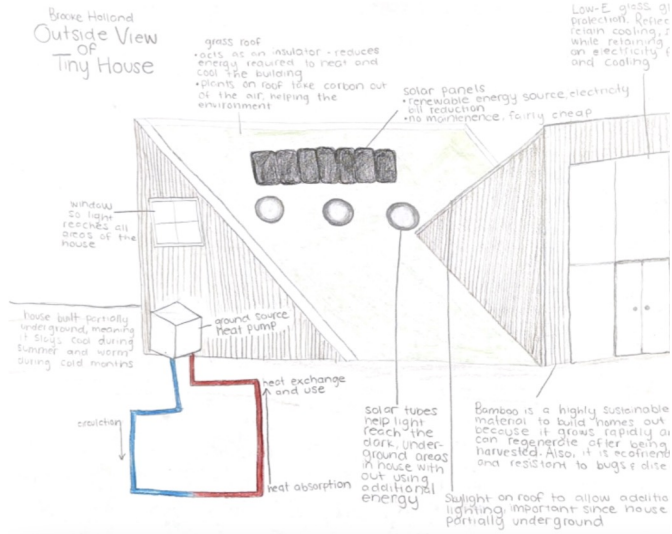 Brooke Holland
Outside View
of
Tiny House
grass roof
•acts as an insulator - reduces
energy required to heat and
cool the building
•plants on roof take carbon out
of the air, helping the
environment
solar panels
•renewable energy source, electricity
bill reduction
•no maintenence, fairly cheap
Low-E glass
protection. Reflec
retain cooling,
while retaining
an electricity
and cooling
window
so light
reaches all
areas of the
house
house built partially
underground, meaning
it stays cool during
summer and warm
during cold months
ground source
heat pump
heat exchange
and use
circulation
heat absorption
solar tubes
help light
reach the
dark, under-
ground areas
in house with
out using
additional
energy
Skylight on roof to allow additio
lighting, important since house
partially underground
Bamboo is a highly sustainable
material to build homes out
because it grows rapidly a
can regenerate after being
harvested. Also, it is ecofriend
and resistant to bugs & dise